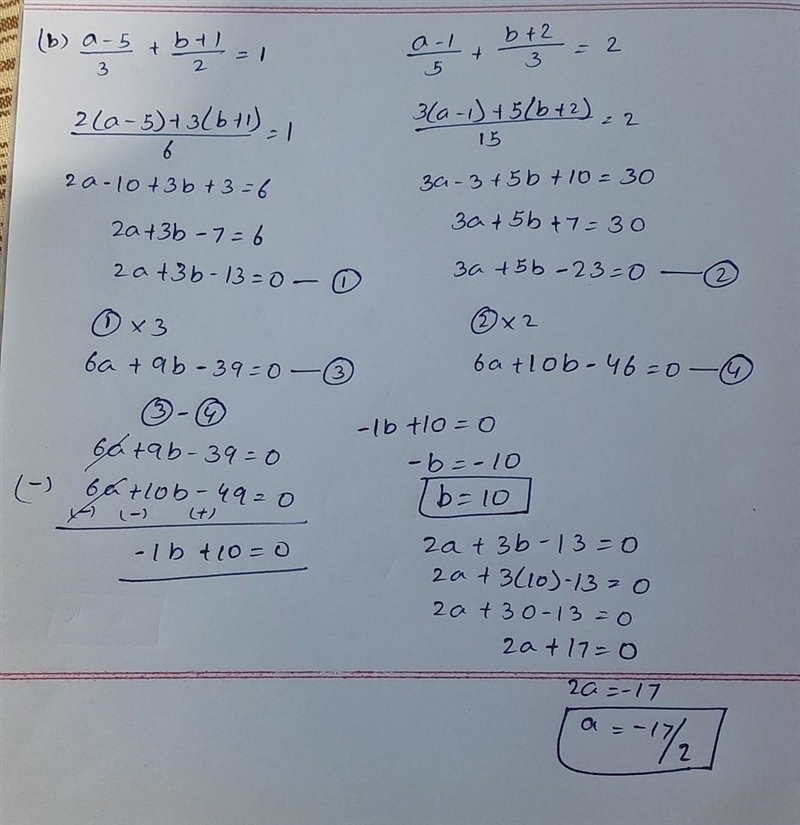 (b) (a-5)/3 + (b+1)/2 = 1
(2(a-5)+3(b+1))/6 = 1
2a-10+3b+3=6
2a+3b-7=6
2a+3b-13=0 — ①
① x 3
6a+9b-39=0 — ③
③ - ④
6a+9b-39=0
(-) 6a+10b-49=0
(-) (-) (+)
-1b+10=0
(a-1)/5 + (b+2)/3 = 2
(3(a-1)+5(b+2))/15 = 2
3a-3+5b+10=30
3a+5b+7=30
3a+5b-23=0 — ②
② x 2
6a+10b-46=0 — ④
-1b+10=0
-b=-10
b=10
2a+3b-13=0
2a+3(10)-13=0
2a+30-13=0
2a+17=0
2a=-17
a=-17/2